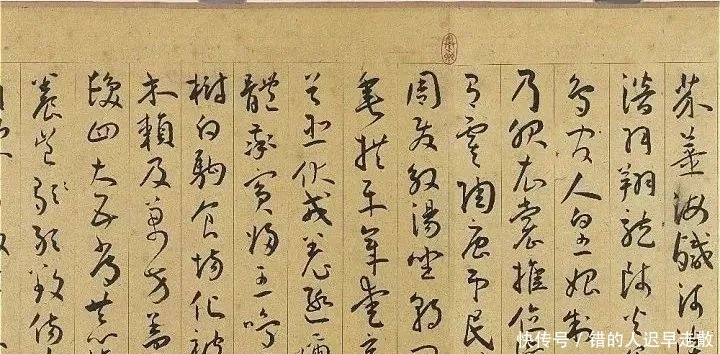 芥薑海鹹河
潛羽翔龍師火
鳥官人皇始制
乃服衣裳推位
有虞陶唐弔民
周發殷湯坐朝問
垂拱平章愛育
首臣伏戎羌遐邇
體率賓歸王鳴
樹白駒食場化被
木賴及萬方蓋
髮四大五常恭惟
養豈敢毀傷
快传号/错的人迟早走散